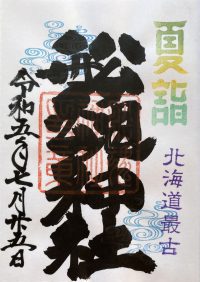 夏詣
北海道最古
船魂神社
令和五年七月廿五日